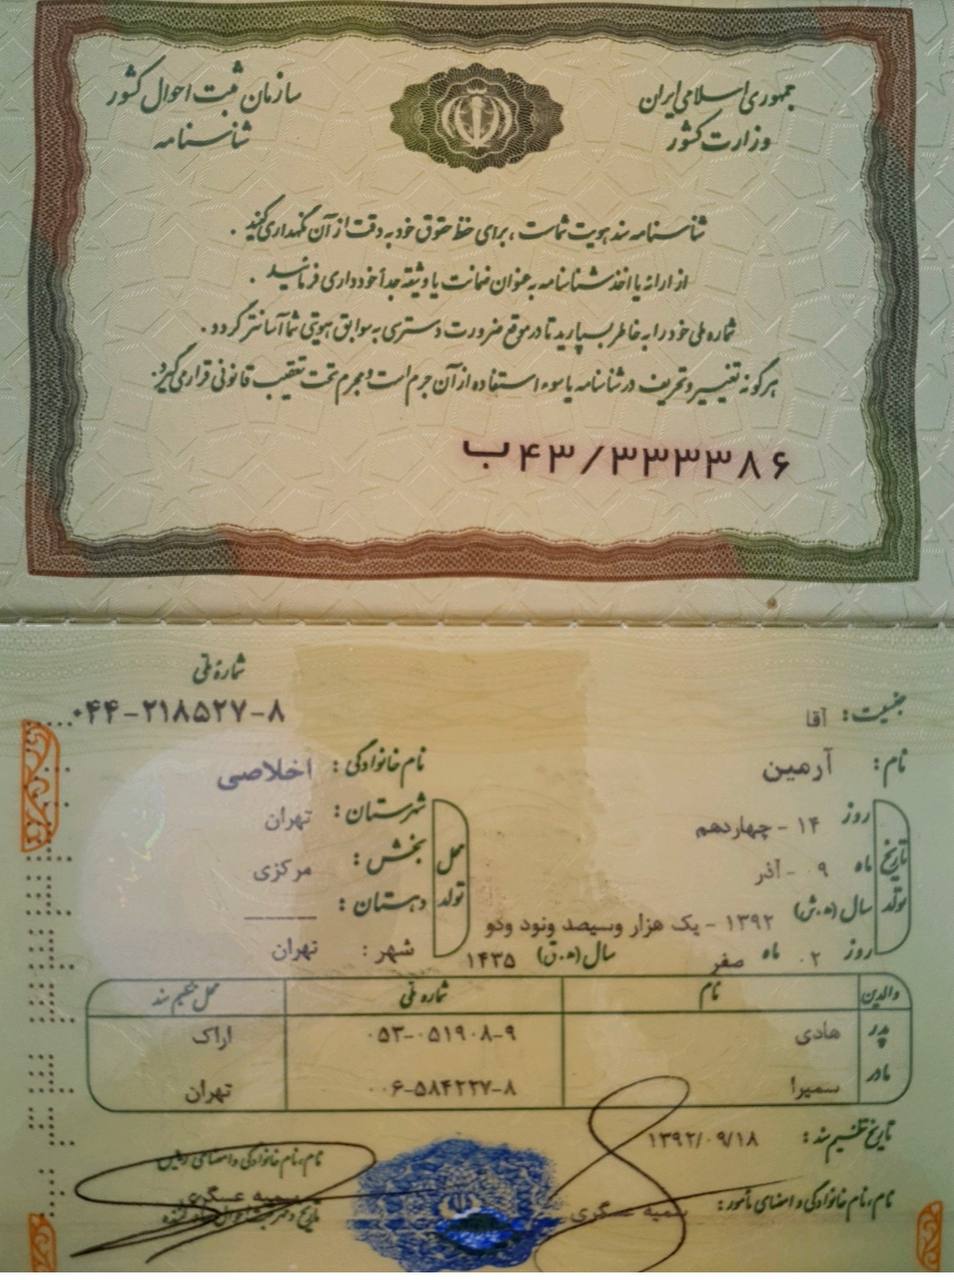 جمهوری اسلامی ایران
وزارت کشور
سازمان ثبت احوال کشور
شناسنامه
شناسنامه سند هویت شماست ، برای حفظ حقوق خود به دقت از آن نگهداری کنید .
از ارائه یا اخذ شناسنامه به عنوان ضمانت یا وثیقه جداً خودداری فرمائید .
شماره ملی خود را به خاطر بسپارید تا در موقع ضرورت دسترسی به سوابق هویتی شما آسانتر گردد .
هرگونه تغییر و تحریف در شناسنامه یا سوء استفاده از آن جرم است و مجرم تحت تعقیب قانونی قرار می‌گیرد.
ب۴۳/۳۳۳۳۸۶
شماره ملی
۰۴۴-۲۱۸۵۲۷-۸
جنسیت: آقا
نام: آرمین
نام خانوادگی: اخلاصی
تاریخ تولد
روز ۱۴ - چهاردهم
ماه ۰۹ - آذر
سال (ه.ش) ۱۳۹۲ - یک هزار وسیصد ونود ودو
روز ۰۲ ماه صفر سال (ه.ق) ۱۴۳۵
محل تولد
شهرستان: تهران
بخش: مرکزی
دهستان: ———
شهر: تهران
والدین نام شماره ملی محل تنظیم سند
پدر هادی ۰۵۳-۰۵۱۹۰۸-۹ اراک
مادر سمیرا ۰۰۶-۵۸۴۲۲۷-۸ تهران
تاریخ تنظیم سند: ۱۳۹۲/۰۹/۱۸
نام، نام خانوادگی و امضای مأمور: سمیه عسگری
نام، نام خانوادگی و امضای رئیس
سمیه عسگری